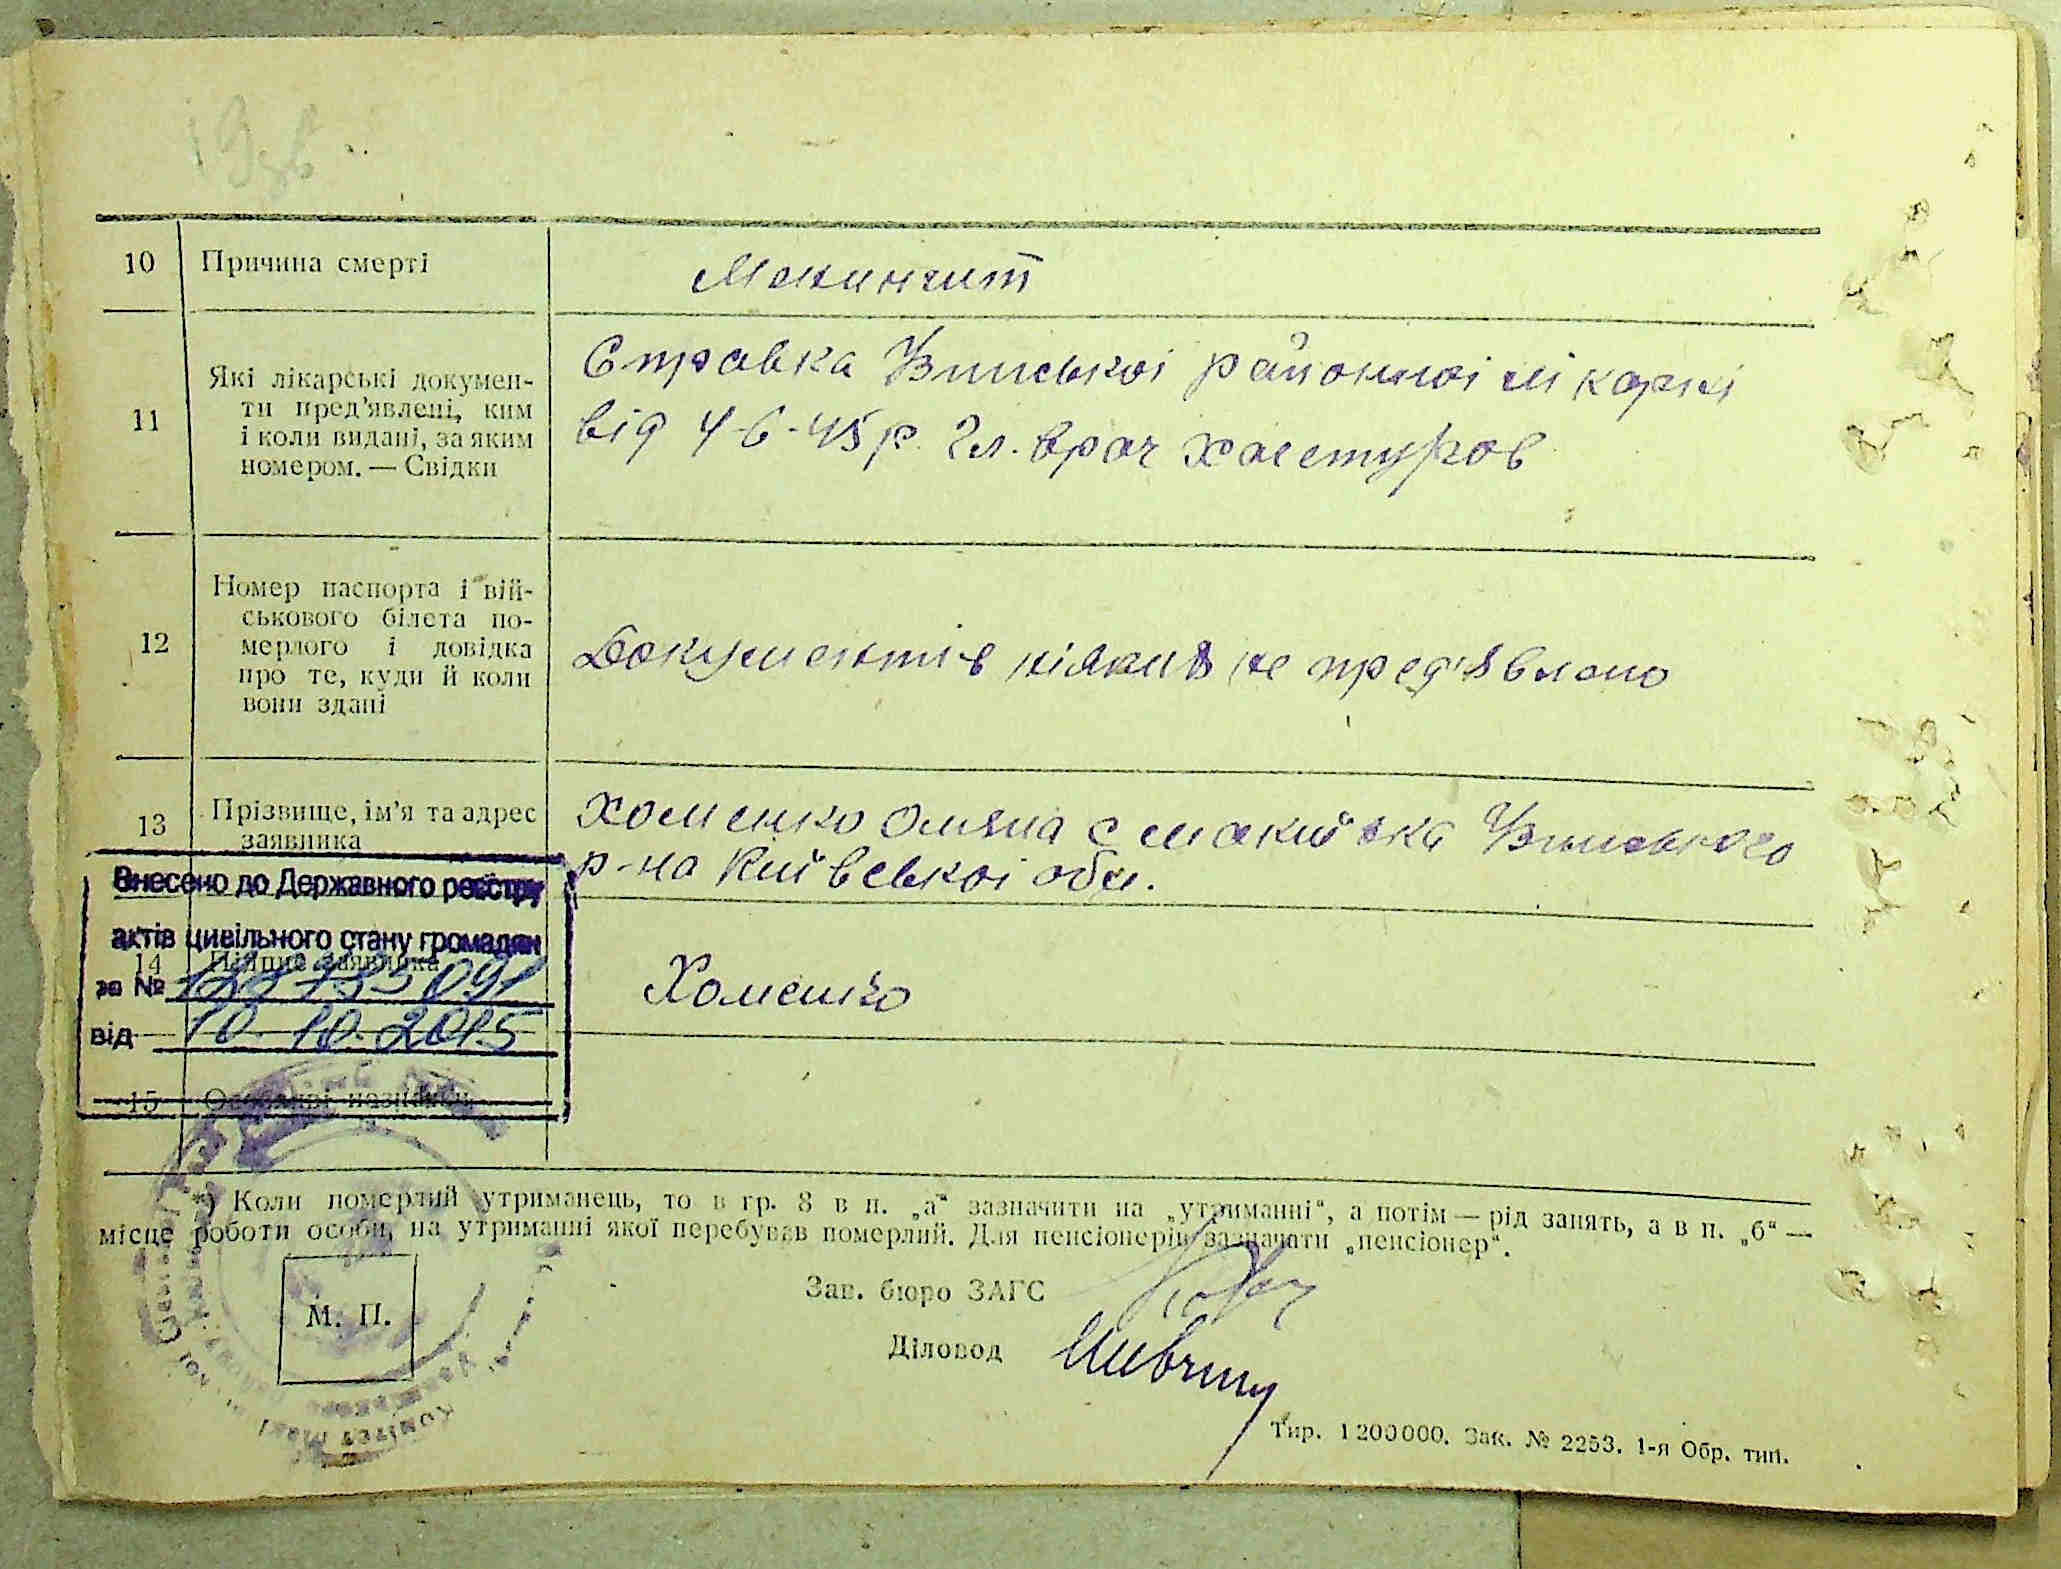 19зв
10 Причина смерті Менингит
11 Які лікарські докумен-
ти пред'явлені, ким
і коли видані, за яким
номером. — Свідки
Справка Узинської районної лікарні
від 4-6-45 р. Гл. врач Хастуров
12 Номер паспорта і вій-
ськового білета по-
мерлого і довідка
про те, куди й коли
вони здані
Документів ніяких не пред'явлено
13 Прізвище, ім'я та адрес
заявника
Хоменко Оляна с Макиївка Узинського
р-на Київської обл.
Внесено до Державного реєстру
актів цивільного стану громадян
14 Підпис заявника Хоменко
за №
від 10.10.2015
15 Особливі
*) Коли померлий утриманець, то в гр. 8 в п. „а“ зазначити на „утриманні“, а потім — рід занять, а в п. „б“ —
місце роботи особи, на утриманні якої перебував померлий. Для пенсіонерів зазначати „пенсіонер“.
Зав. бюро ЗАГС
М. П.
Діловод
Тир. 1 200 000. Зак. № 2253. 1-я Обр. тип.